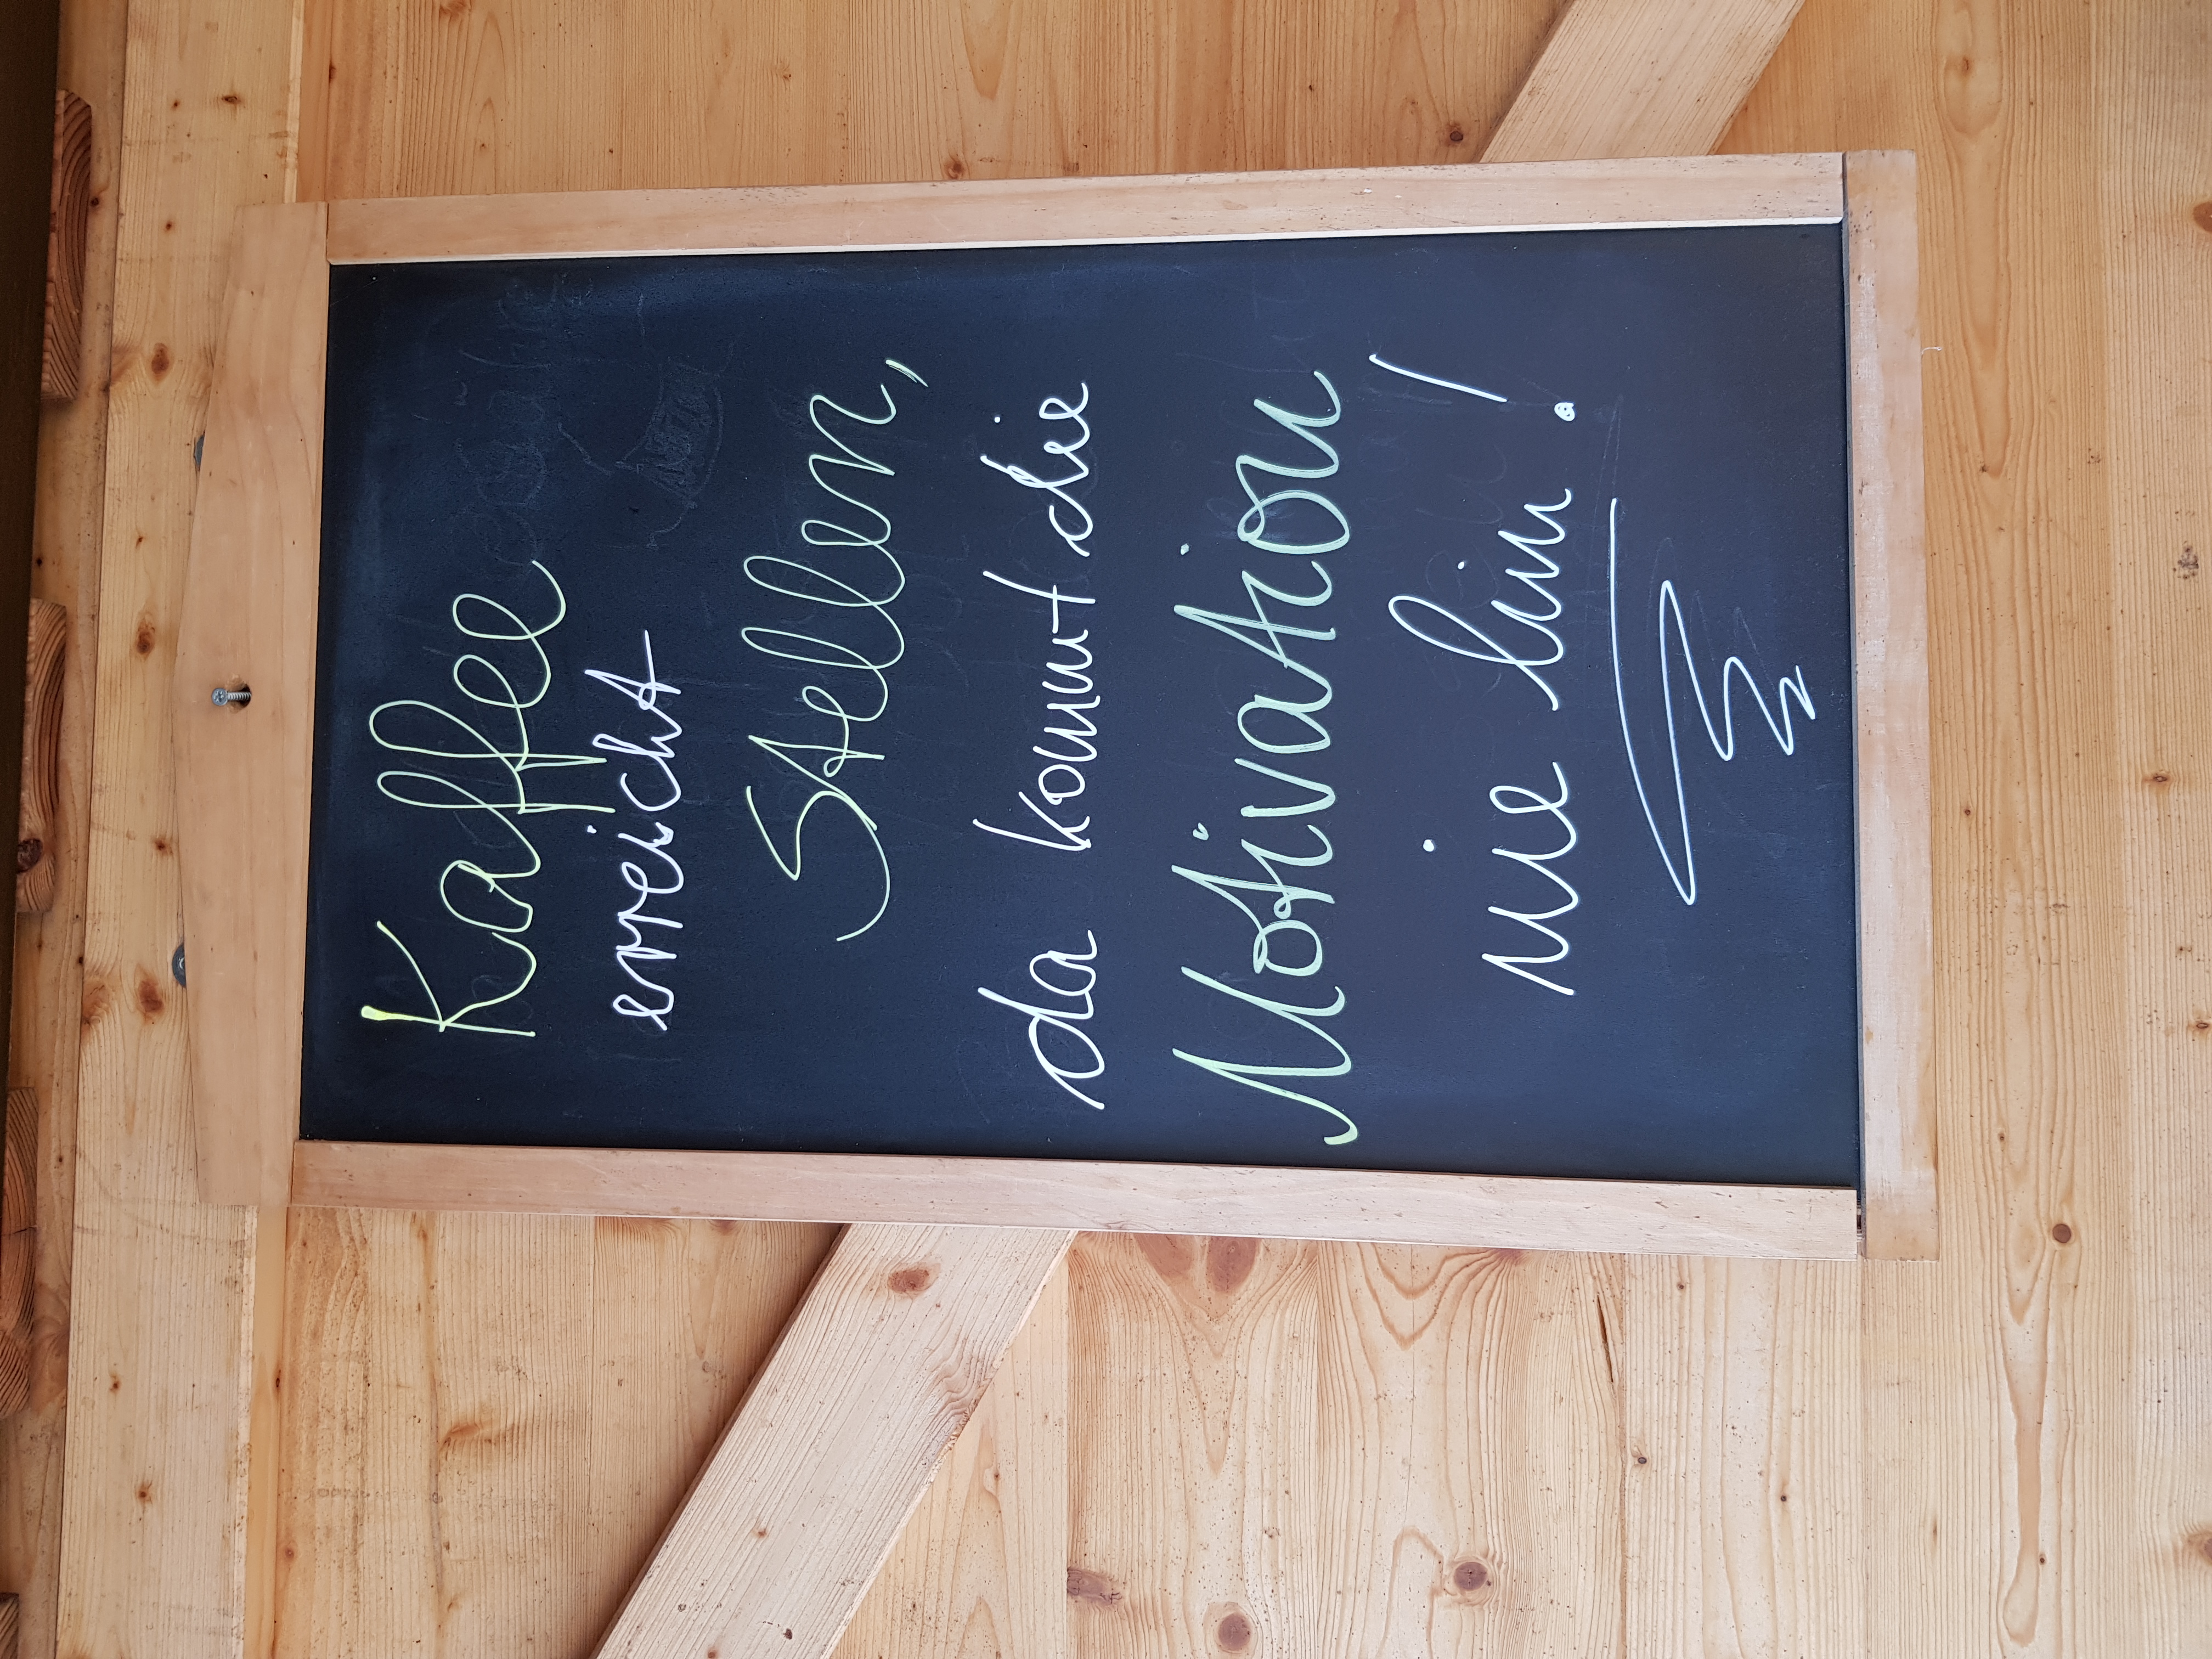 Kaffee
erreicht
Stellen,
da kommt die
Motivation
nie hin!